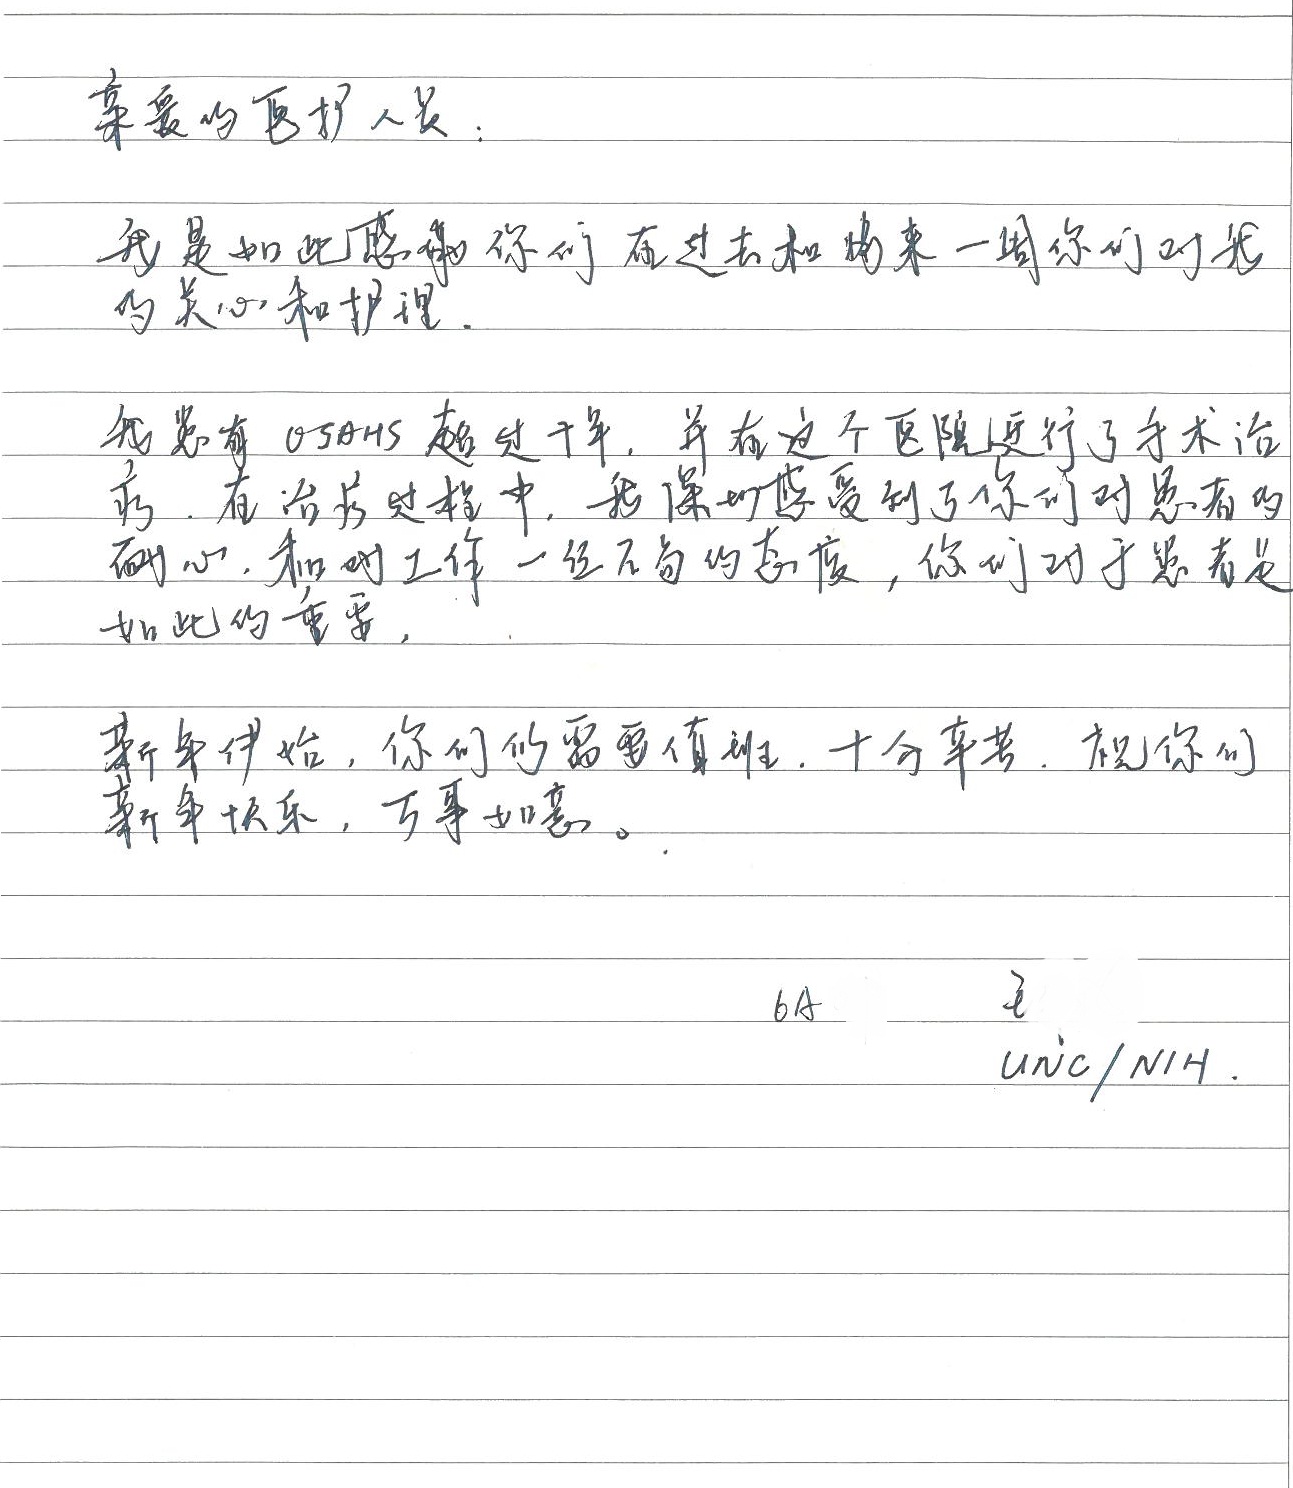 亲爱的医护人员：
我是如此感谢你们在过去和将来一周你们对我
的关心和护理.
我患有OSAHS超过十年，并在这个医院进行了手术治
疗.在治疗过程中，我深切感受到了你们对患者的
耐心，和对工作一丝不苟的态度，你们对于患者是
如此的重要，
新年伊始，你们仍需要值班.十分辛苦.祝你们
新年快乐，万事如意。
6A
UNC/NIH.